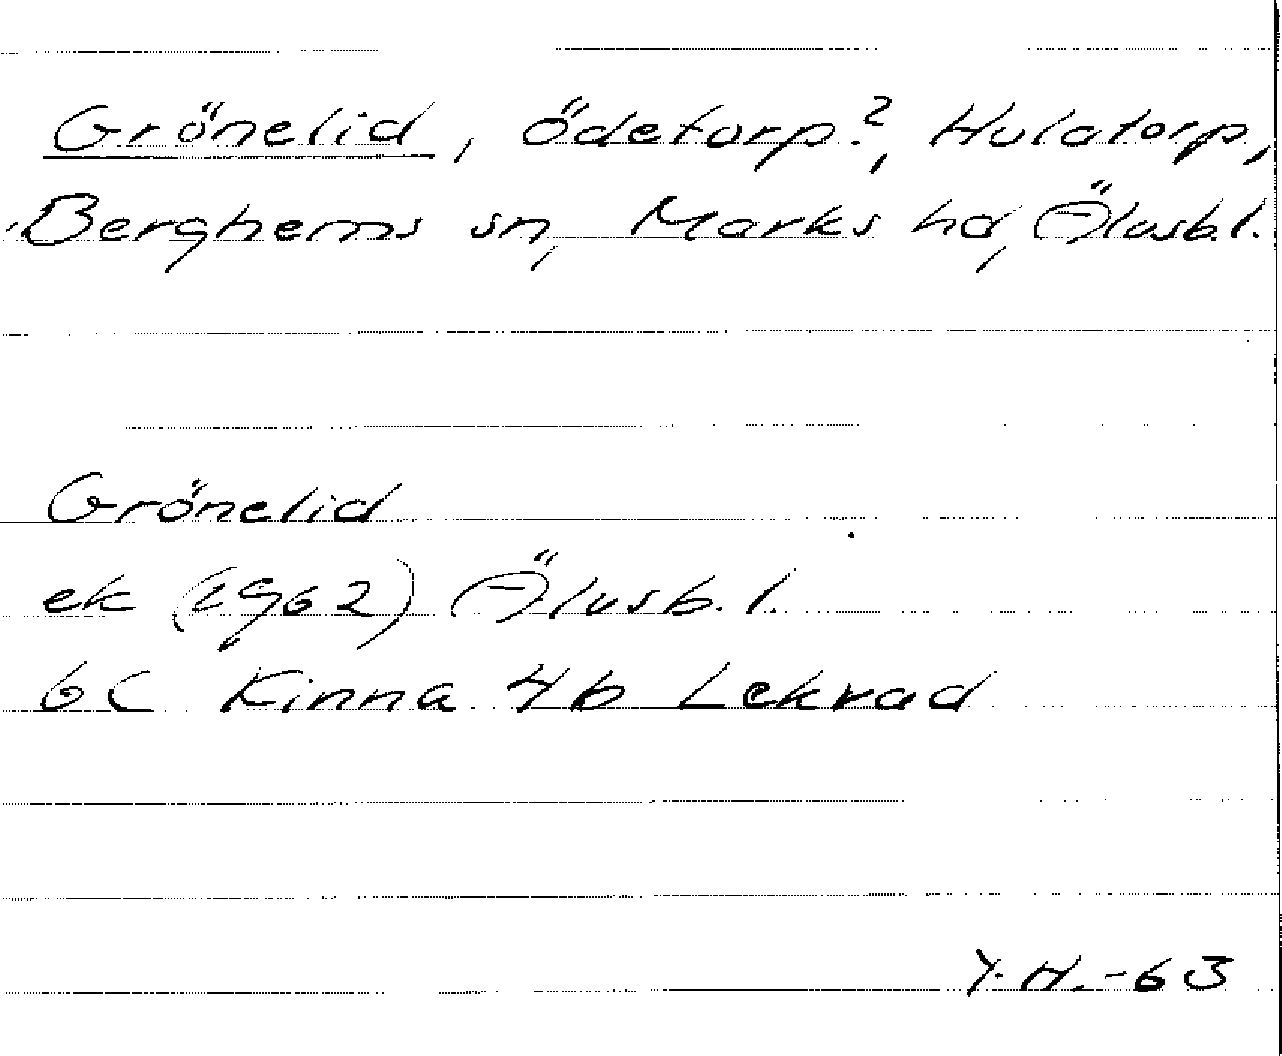 Grönelid, ödetorp?, Hulatorp,
Berghems sn, Marks hd, Älvsb.l.
Grönelid
ek (1962) Älvsb.l.
6C Kinna 4b Lekvad
Y.H.-63